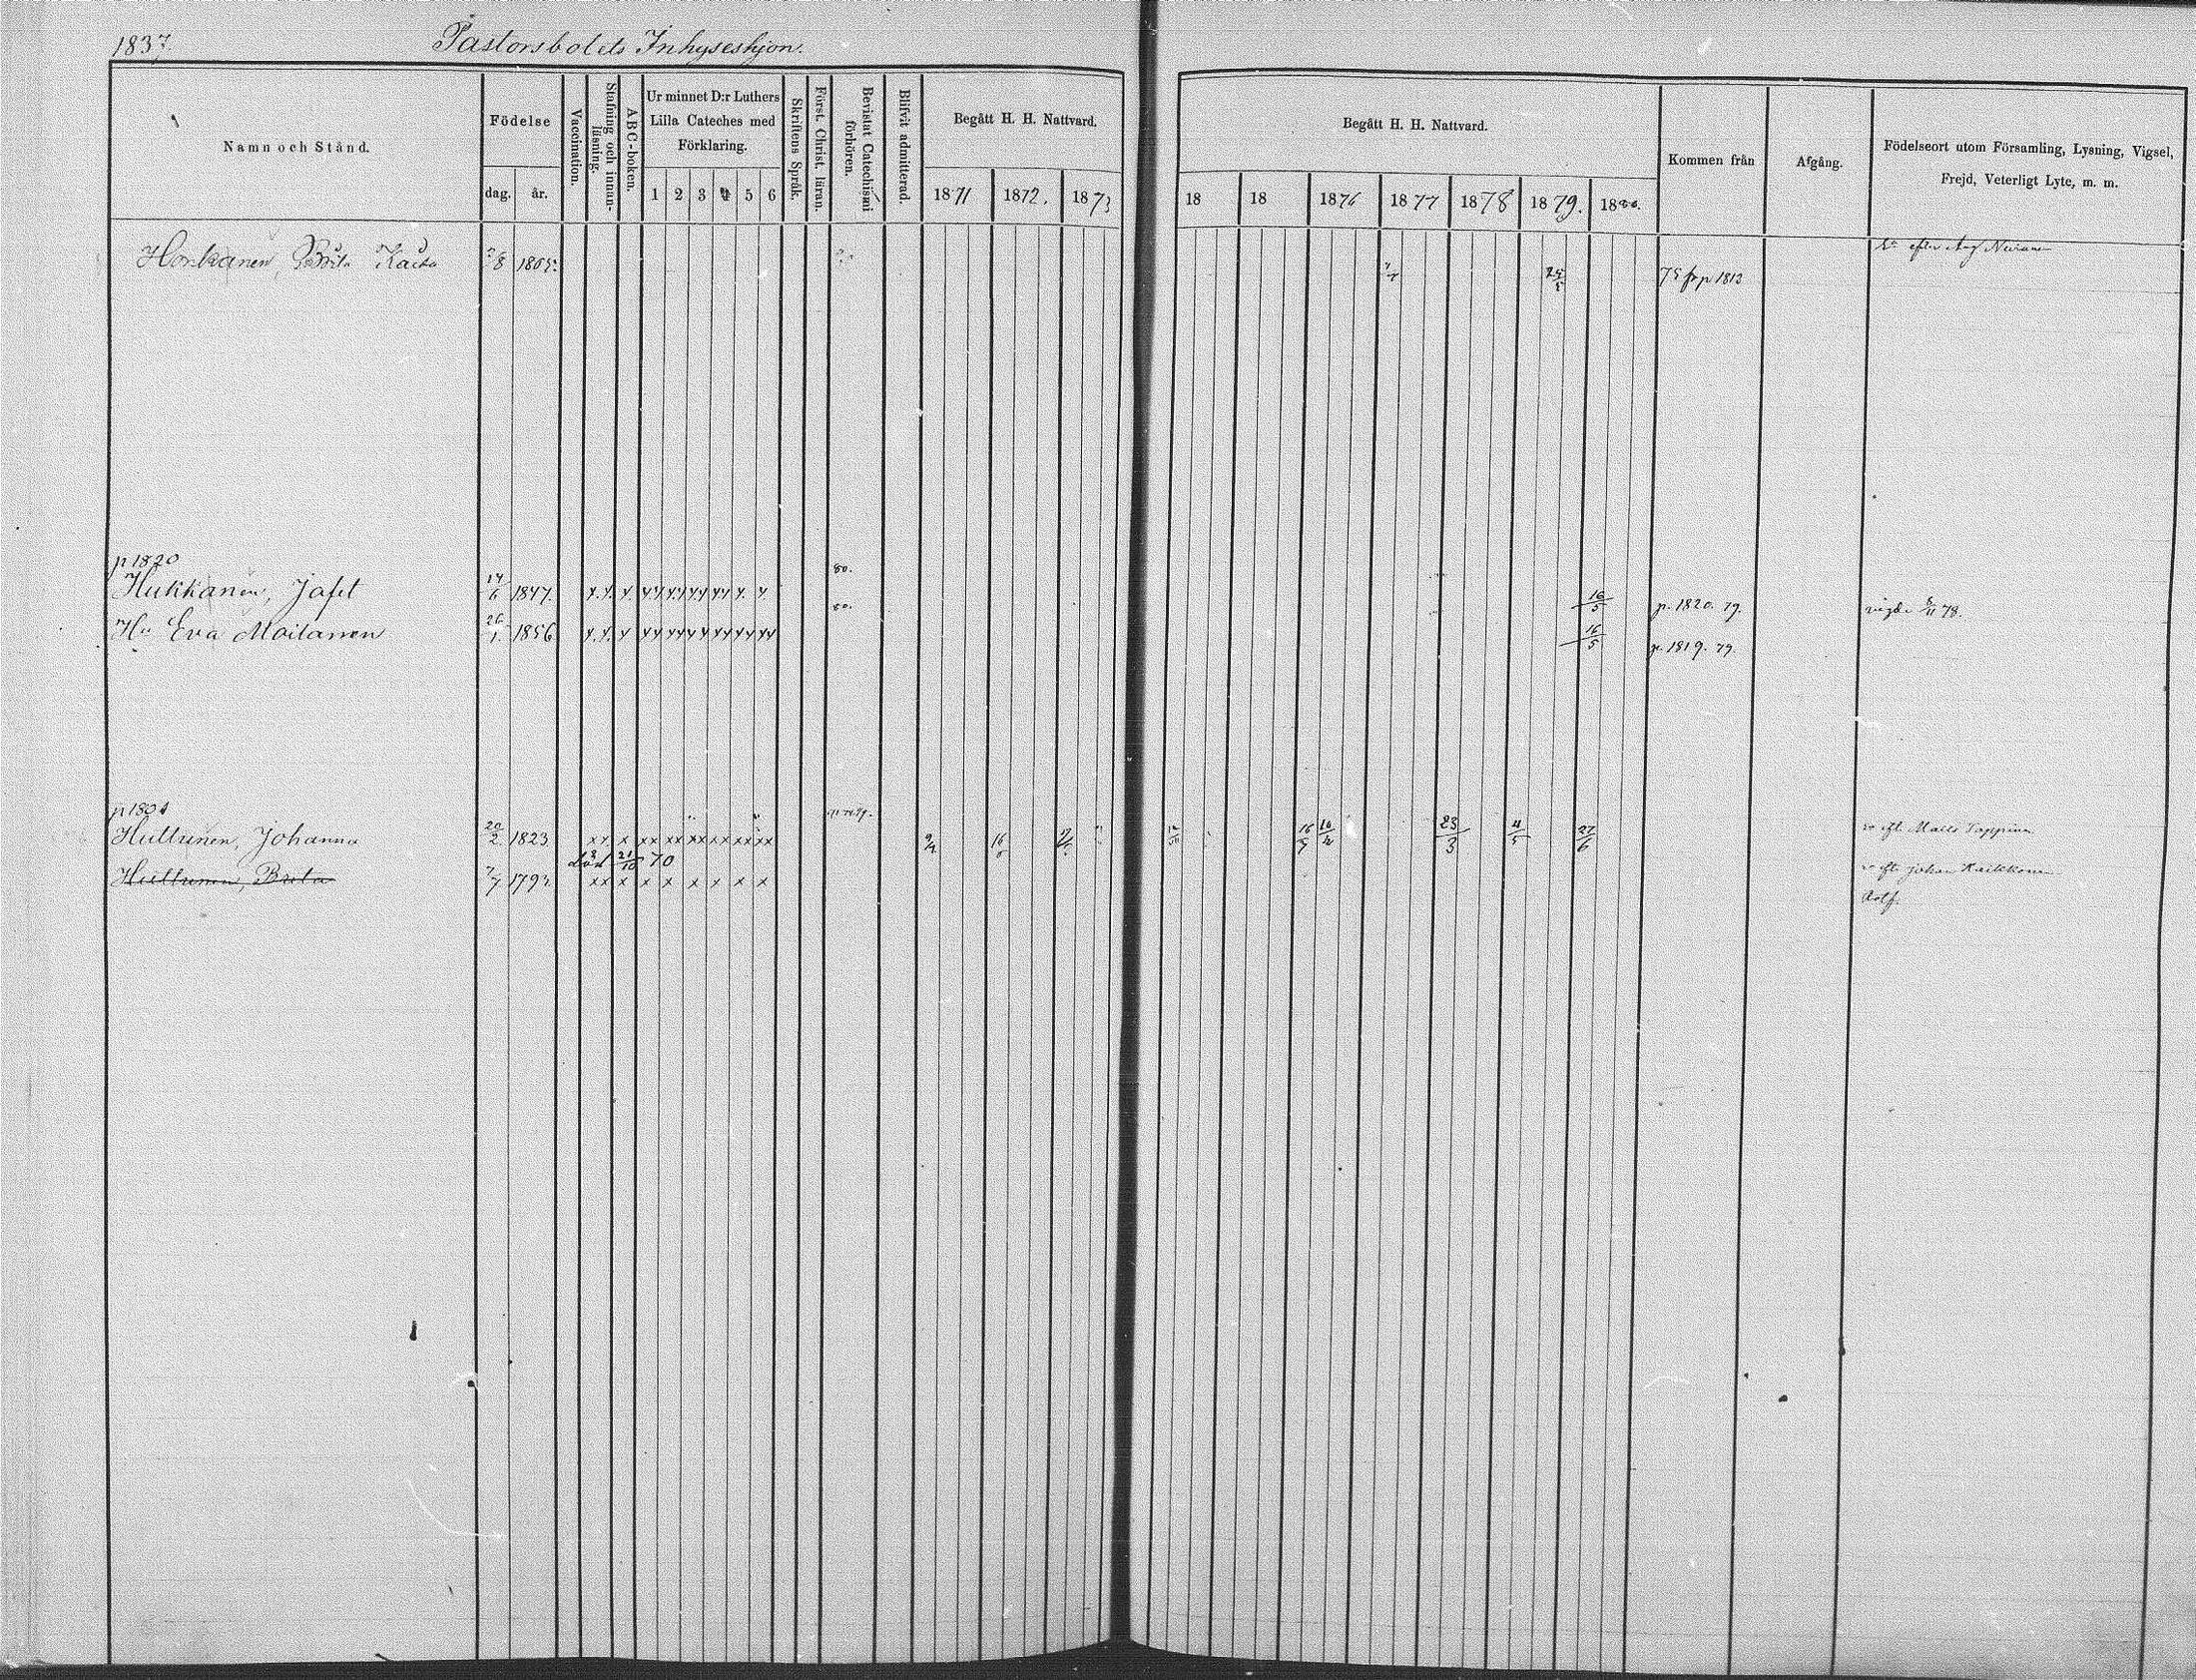 1837. Pastorsbolets Inhyseshjon.
Namn och Stånd. Födelse dag. år. Vaccination. Stafning och innanläsning. ABC-boken. Ur minnet D:r Luthers Lilla Cateches med Förklaring. 1 2 3 4 5 6 Skriftens Språk. Först. Christ. läran. Bevistat Catechismi förhören. Blifvit admitterad. Begått H. H. Nattvard. 1871 1872. 1873
Begått H. H. Nattvard. 18 18 1876 1877 1878 1879. 1880. Kommen från Afgång. Födelseort utom Församling, Lysning, Vigsel, Frejd, Veterligt Lyte, m. m.
Honkanen, Brita Kaisa 8 1805. 24/5 75 fr p 1813
p 1820
Hukkanen, Jafet 14/6 1847. x.x. x xx xx xx xx x. x 80. 16/5 p. 1820. 79. vigde 8/11 78.
Hu Eva Moilanen 26/1. 1856 x.x. x xx xx xx xx xx xx 80. 16/5 p. 1819. 79.
p 1804
Huttunen, Johanna 20/2. 1823 xx x xx xx xx xx xx xx 9/4 16/6 16/9 10/4 23/3 4/5 27/6 eft. Matts Tappinen
död 21/10 70
Huttunen, Brita 7/7 1792. xx x x x x x x x eft johan Kaikkonen